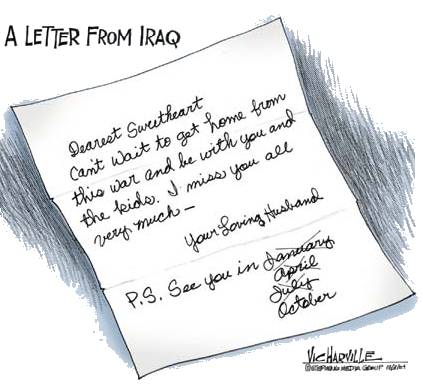 A LETTER FROM IRAQ
Dearest Sweetheart
Can't Wait to get home from
this war and be with you and
the kids. I miss you all
very much —
Your Loving Husband
P.S. See you in January
April
July
October
VIC HARVILLE